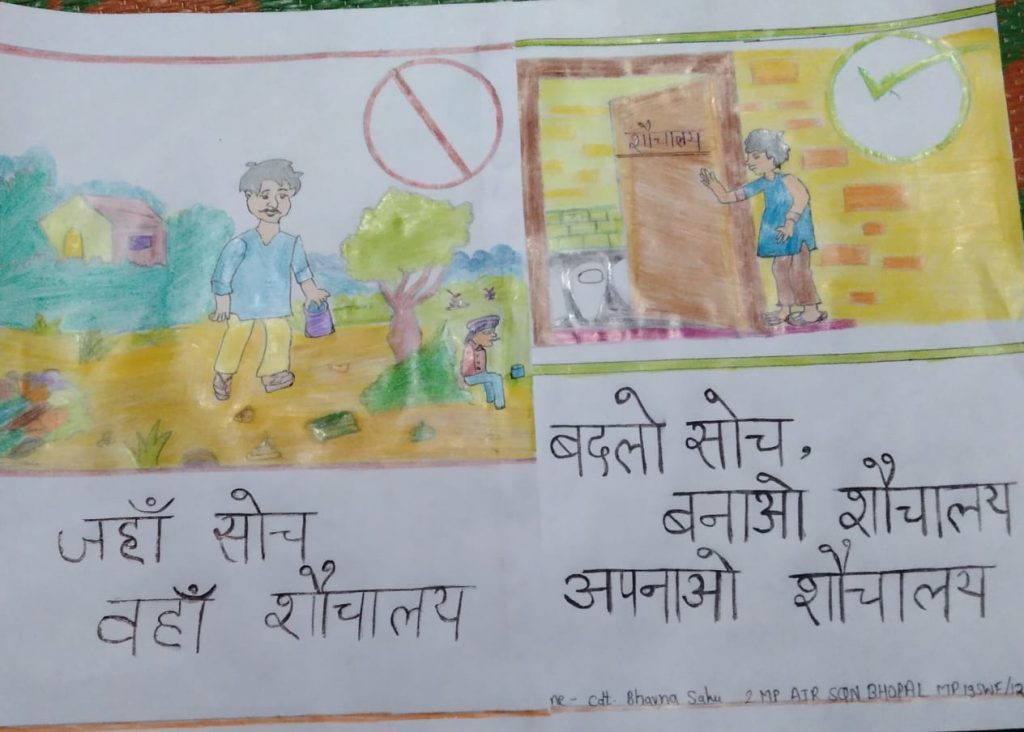 शौचालय
जहाँ सोच
वहाँ शौचालय
बदलो सोच,
बनाओ शौचालय
अपनाओ शौचालय
ne - Cdt. Bhavna Sahu 2 MP AIR SQN BHOPAL